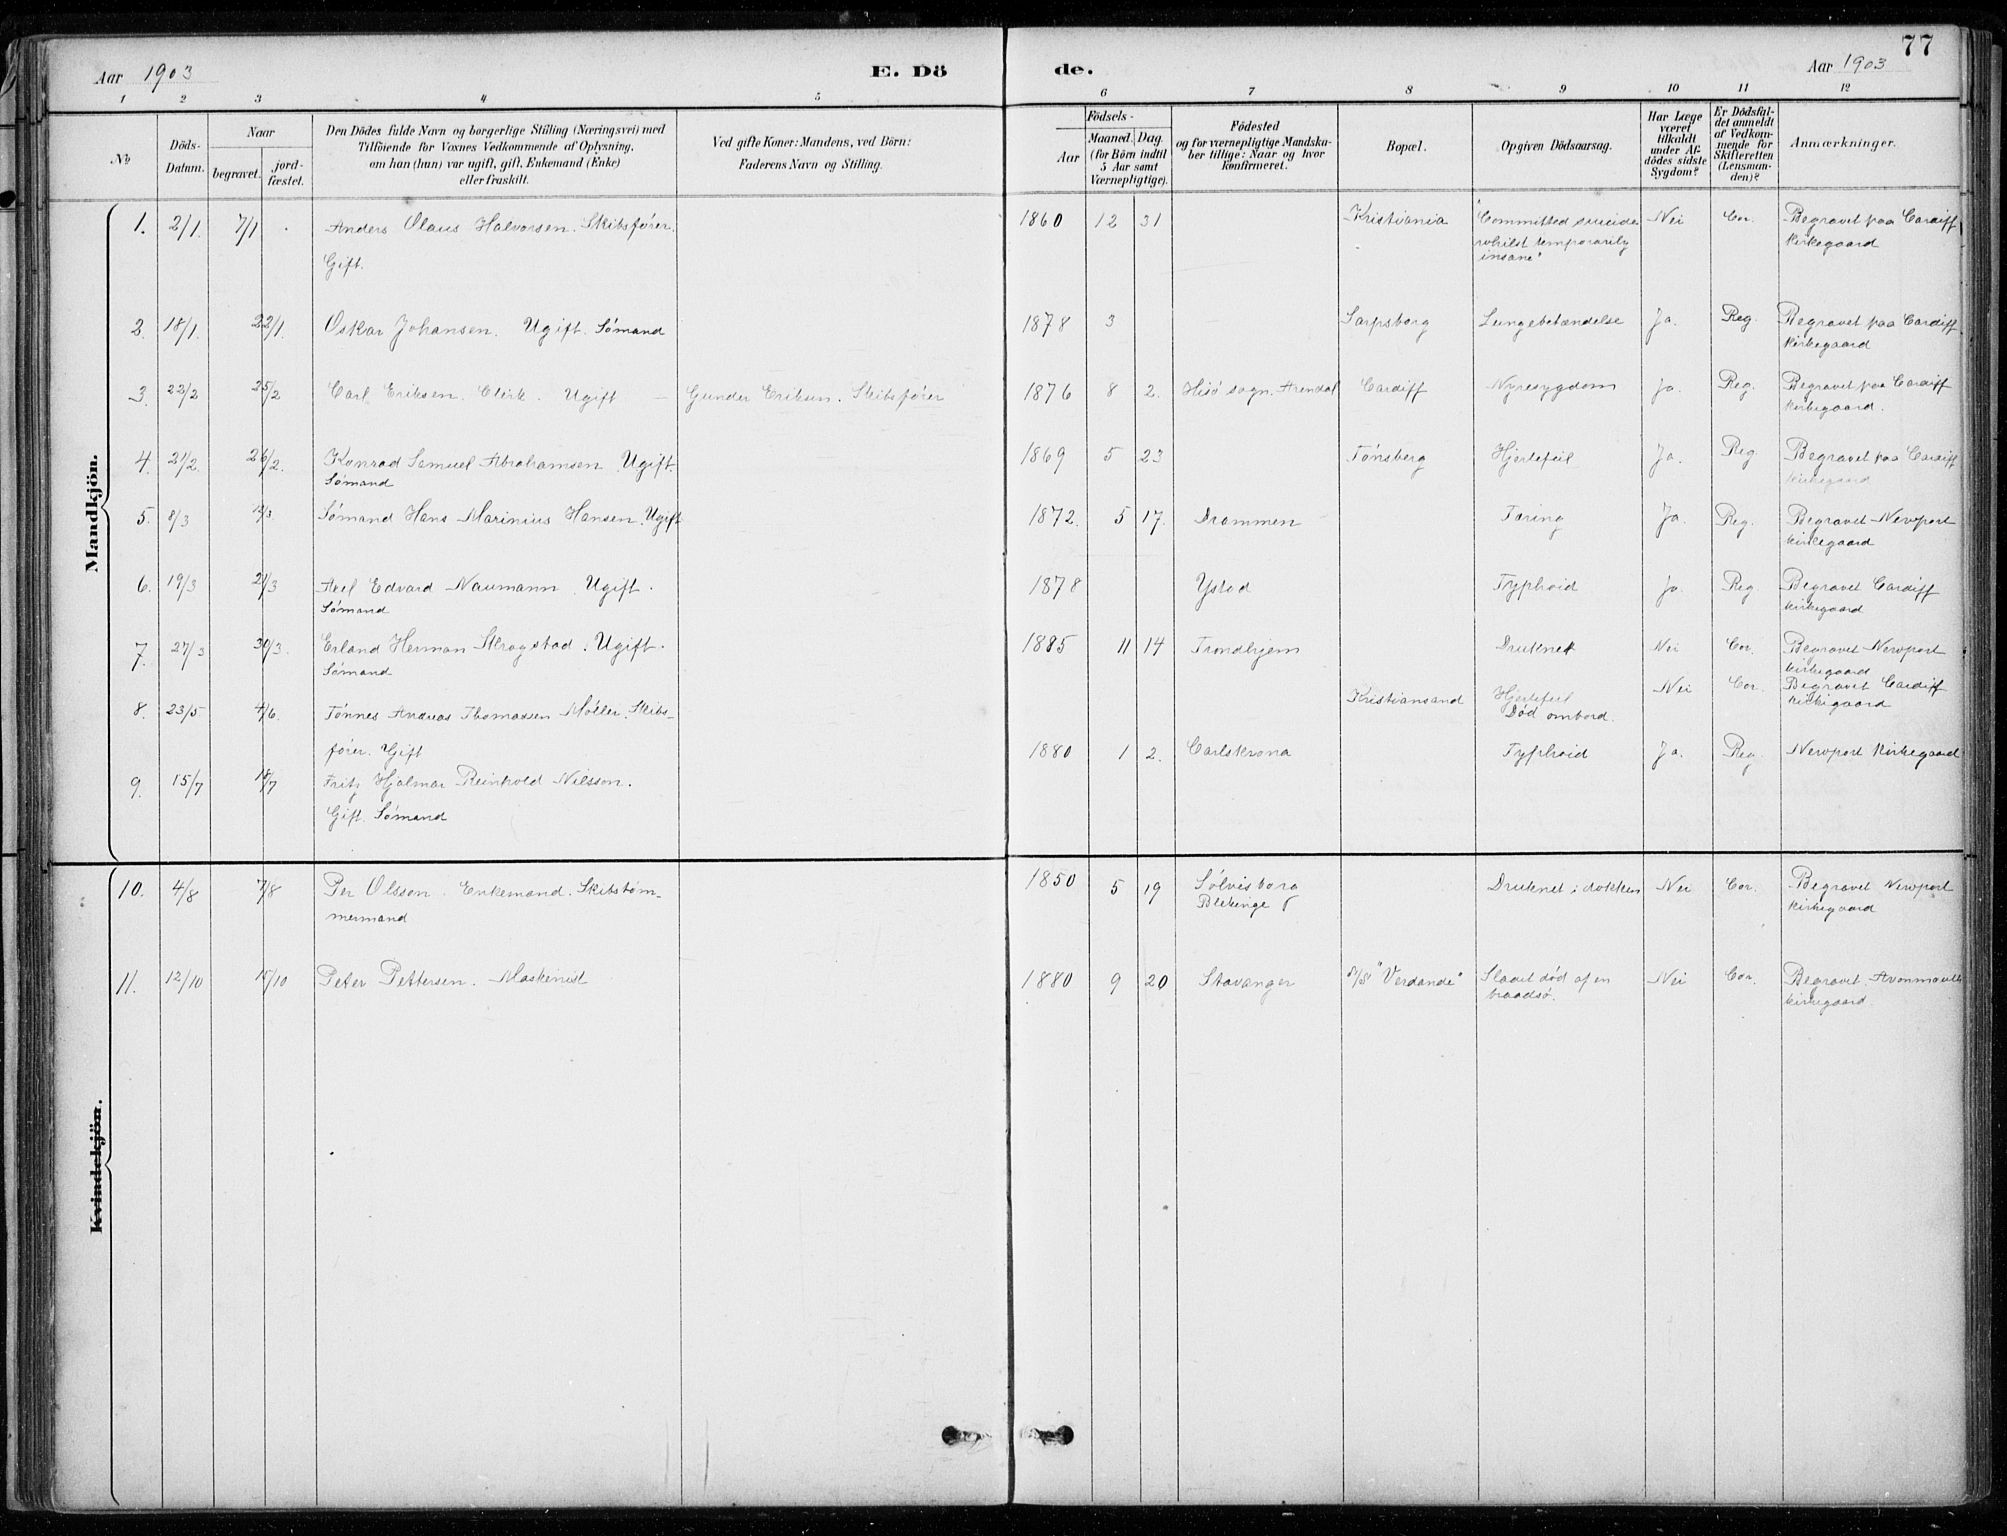 77
Aar 1903
E. Dö
de.
Aar 1903
1 2 3 4 5 6 7 8 9 10 11 12
No
Döds-Datum.
Naar
begravet.
jord-fæstet.
Den Dödes fulde Navn og borgerlige Stilling (Næringsvei) med
Tilföiende for Voxnes Vedkommende af Oplysning,
om han (hun) var ugift, gift, Enkemand (Enke)
eller fraskilt.
Ved gifte Koner: Mandens, ved Börn:
Faderens Navn og Stilling.
Födsels-
Aar
Maaned. Dag.
(for Börn indtil
5 Aar samt
Værnepligtige).
Födested
og for værnepligtige Mandska-
ber tillige: Naar og hvor
konfirmeret.
Bopæl.
Opgiven Dödsaarsag.
Har Læge
været
tilkaldt
under Af-
dödes sidste
Sygdom?
Er Dödsfal-
det anmeldt
af Vedkom-
mende for
Skifteretten
(Lensman-
den)?
Anmærkninger.
Mandkjön.
1. 2/1. 7/1 Anders Olaus Halvorsen. Skibsfører. 1860 12 31 Kristiania "Committed suicide Nei Cor. Begravet paa Cardiff
Gift. whilst temporarily kirkegaard
insane"
2. 18/1. 22/1. Oskar Johansen. Ugift. Sømand 1878 3 Sarpsborg Lungebetændelse Ja. Reg. Begravet paa Cardiff
kirkegaard
3. 22/2 25/2 Carl Eriksen. Clerk. Ugift — Gunder Eriksen. Skibsfører 1876 8 2. Hisø sogn. Arendal Cardiff Nyresygdom Ja. Reg. Begravet paa Cardiff
kirkegaard.
4. 21/2. 26/2. Konrad Samuel Abrahamsen. Ugift. 1869 5 23 Tønsberg Hjertefeil Ja. Reg Begravet paa Cardiff
Sømand kirkegaard
5. 8/3 Sømand Hans Marinius Hansen. Ugift 1872. 5 17. Drammen Tæring Ja. Reg. Begravet Newport
kirkegaard
6. 19/3 21/3 Axel Edvard Naumann. Ugift. 1878 Ystad Typhoid Ja. Reg Begravet Cardiff
Sømand kirkegaard
7. 27/3 30/3. Erland Herman Skrogstad. Ugift. 1885 11 14 Trondhjem Druknet Nei Cor. Begravet Newport
Sømand kirkegaard
8. 23/5 4/6. Tønnes Andreas Thomassen Møller. Skibs- Kristiansand Hjertefeil Nei Cor. Begravet Cardiff
Død ombord. kirkegaard
fører. Gift
9. 15/7 18/7 Fritz Hjalmar Reinhold Nilsson. 1880 1 2. Carlskrona Typhoid Ja. Reg. Newport Kirkegaard
Gift. Sømand
Kvindekjön.
10. 4/8 7/8 Per Olsson. Enkemand. Skibstøm- 1850 5 19 Sølvisborg Druknet i dokken Nei Cor. Begravet Newport
mermand Blekinge kirkegaard
11. 12/10 15/10 Peter Pettersen. Maskinist 1880 9 20 Stavanger S/S "Verdande" Slaaet død af en Nei Cor. Begravet Avonmouth
braadsø. kirkegaard